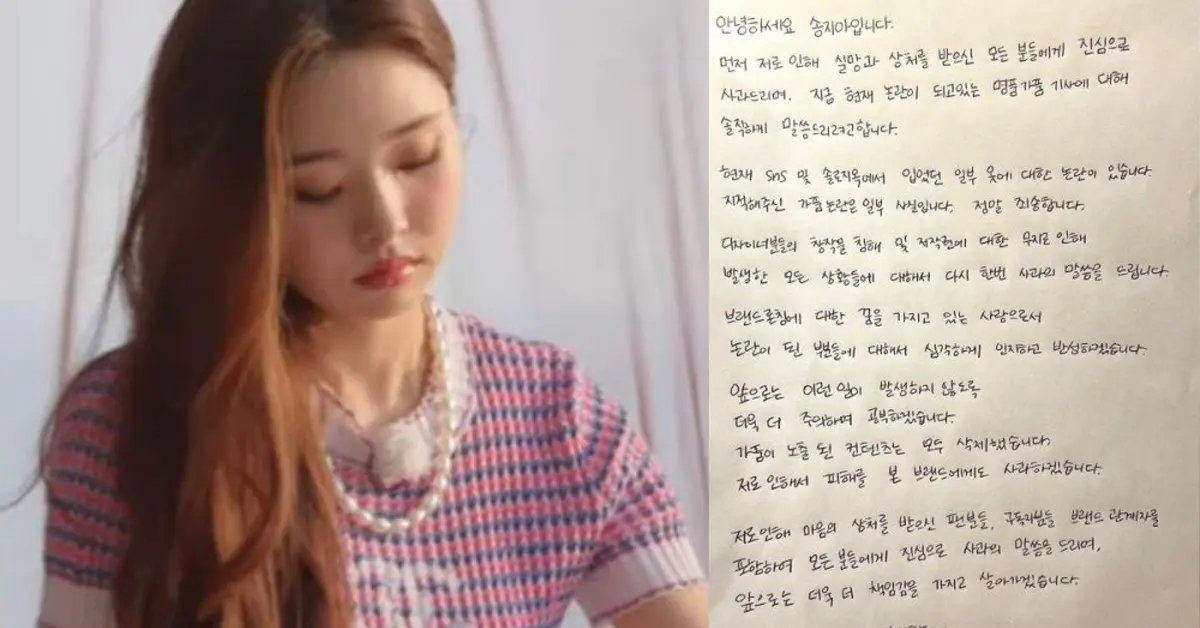 안녕하세요 송지아입니다.
먼저 저로 인해 실망과 상처를 받으신 모든 분들에게 진심으로
사과드리며, 지금 현재 논란이 되고있는 명품가품 기사에 대해
솔직하게 말씀드리려고합니다.
현재 sns 및 솔로지옥에서 입었던 일부 옷에 대한 논란이 있습니다.
지적해주신 가품논란은 일부 사실입니다. 정말 죄송합니다.
디자이너분들의 창작물 침해 및 저작권에 대한 무지로 인해
발생한 모든 상황들에 대해서 다시 한번 사과의 말씀을 드립니다.
브랜드론칭에 대한 꿈을 가지고 있는 사람으로서
논란이 된 부분들에 대해서 심각하게 인지하고 반성하겠습니다.
앞으로는 이런 일이 발생하지 않도록
더욱 더 주의하며 공부하겠습니다.
가품이 노출 된 컨텐츠는 모두 삭제했습니다
저로 인해서 피해를 본 브랜드에게도 사과하겠습니다.
저로인해 마음의 상처를 받으신 팬분들, 구독자분들 브랜드 관계자를
포함하여 모든 분들에게 진심으로 사과의 말씀을 드리며,
앞으로는 더욱 더 책임감을 가지고 살아가겠습니다.